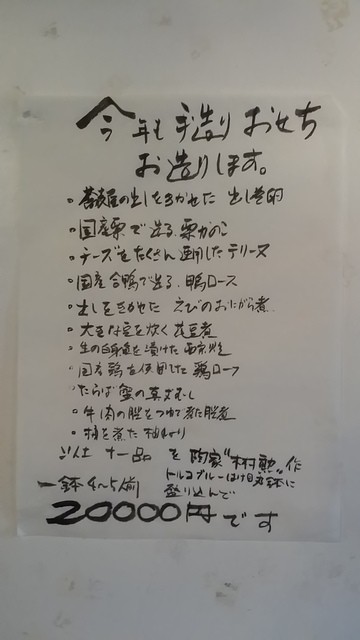 今年も手造りおせち
お造りします。
。 の出しをきかせた 出し巻卵
。国産栗で造る、栗かのこ
。チーズをたくさん使用したテリーヌ
。国産合鴨で造る、鴨ロース
。出しをきかせた えびのおにがら煮
。大きな豆を炊く 花豆煮
。生の白身魚を漬けた西京焼
。国産鶏を使用した 鶏ロース
。たらば蟹の
。牛肉の をつゆで煮た
。柚を煮た 柚ねり
以上 十一品 を 陶家"木村勲"作
トルコブルー 鉢に
一鉢 4〜5人前 盛り込んで
20000円です